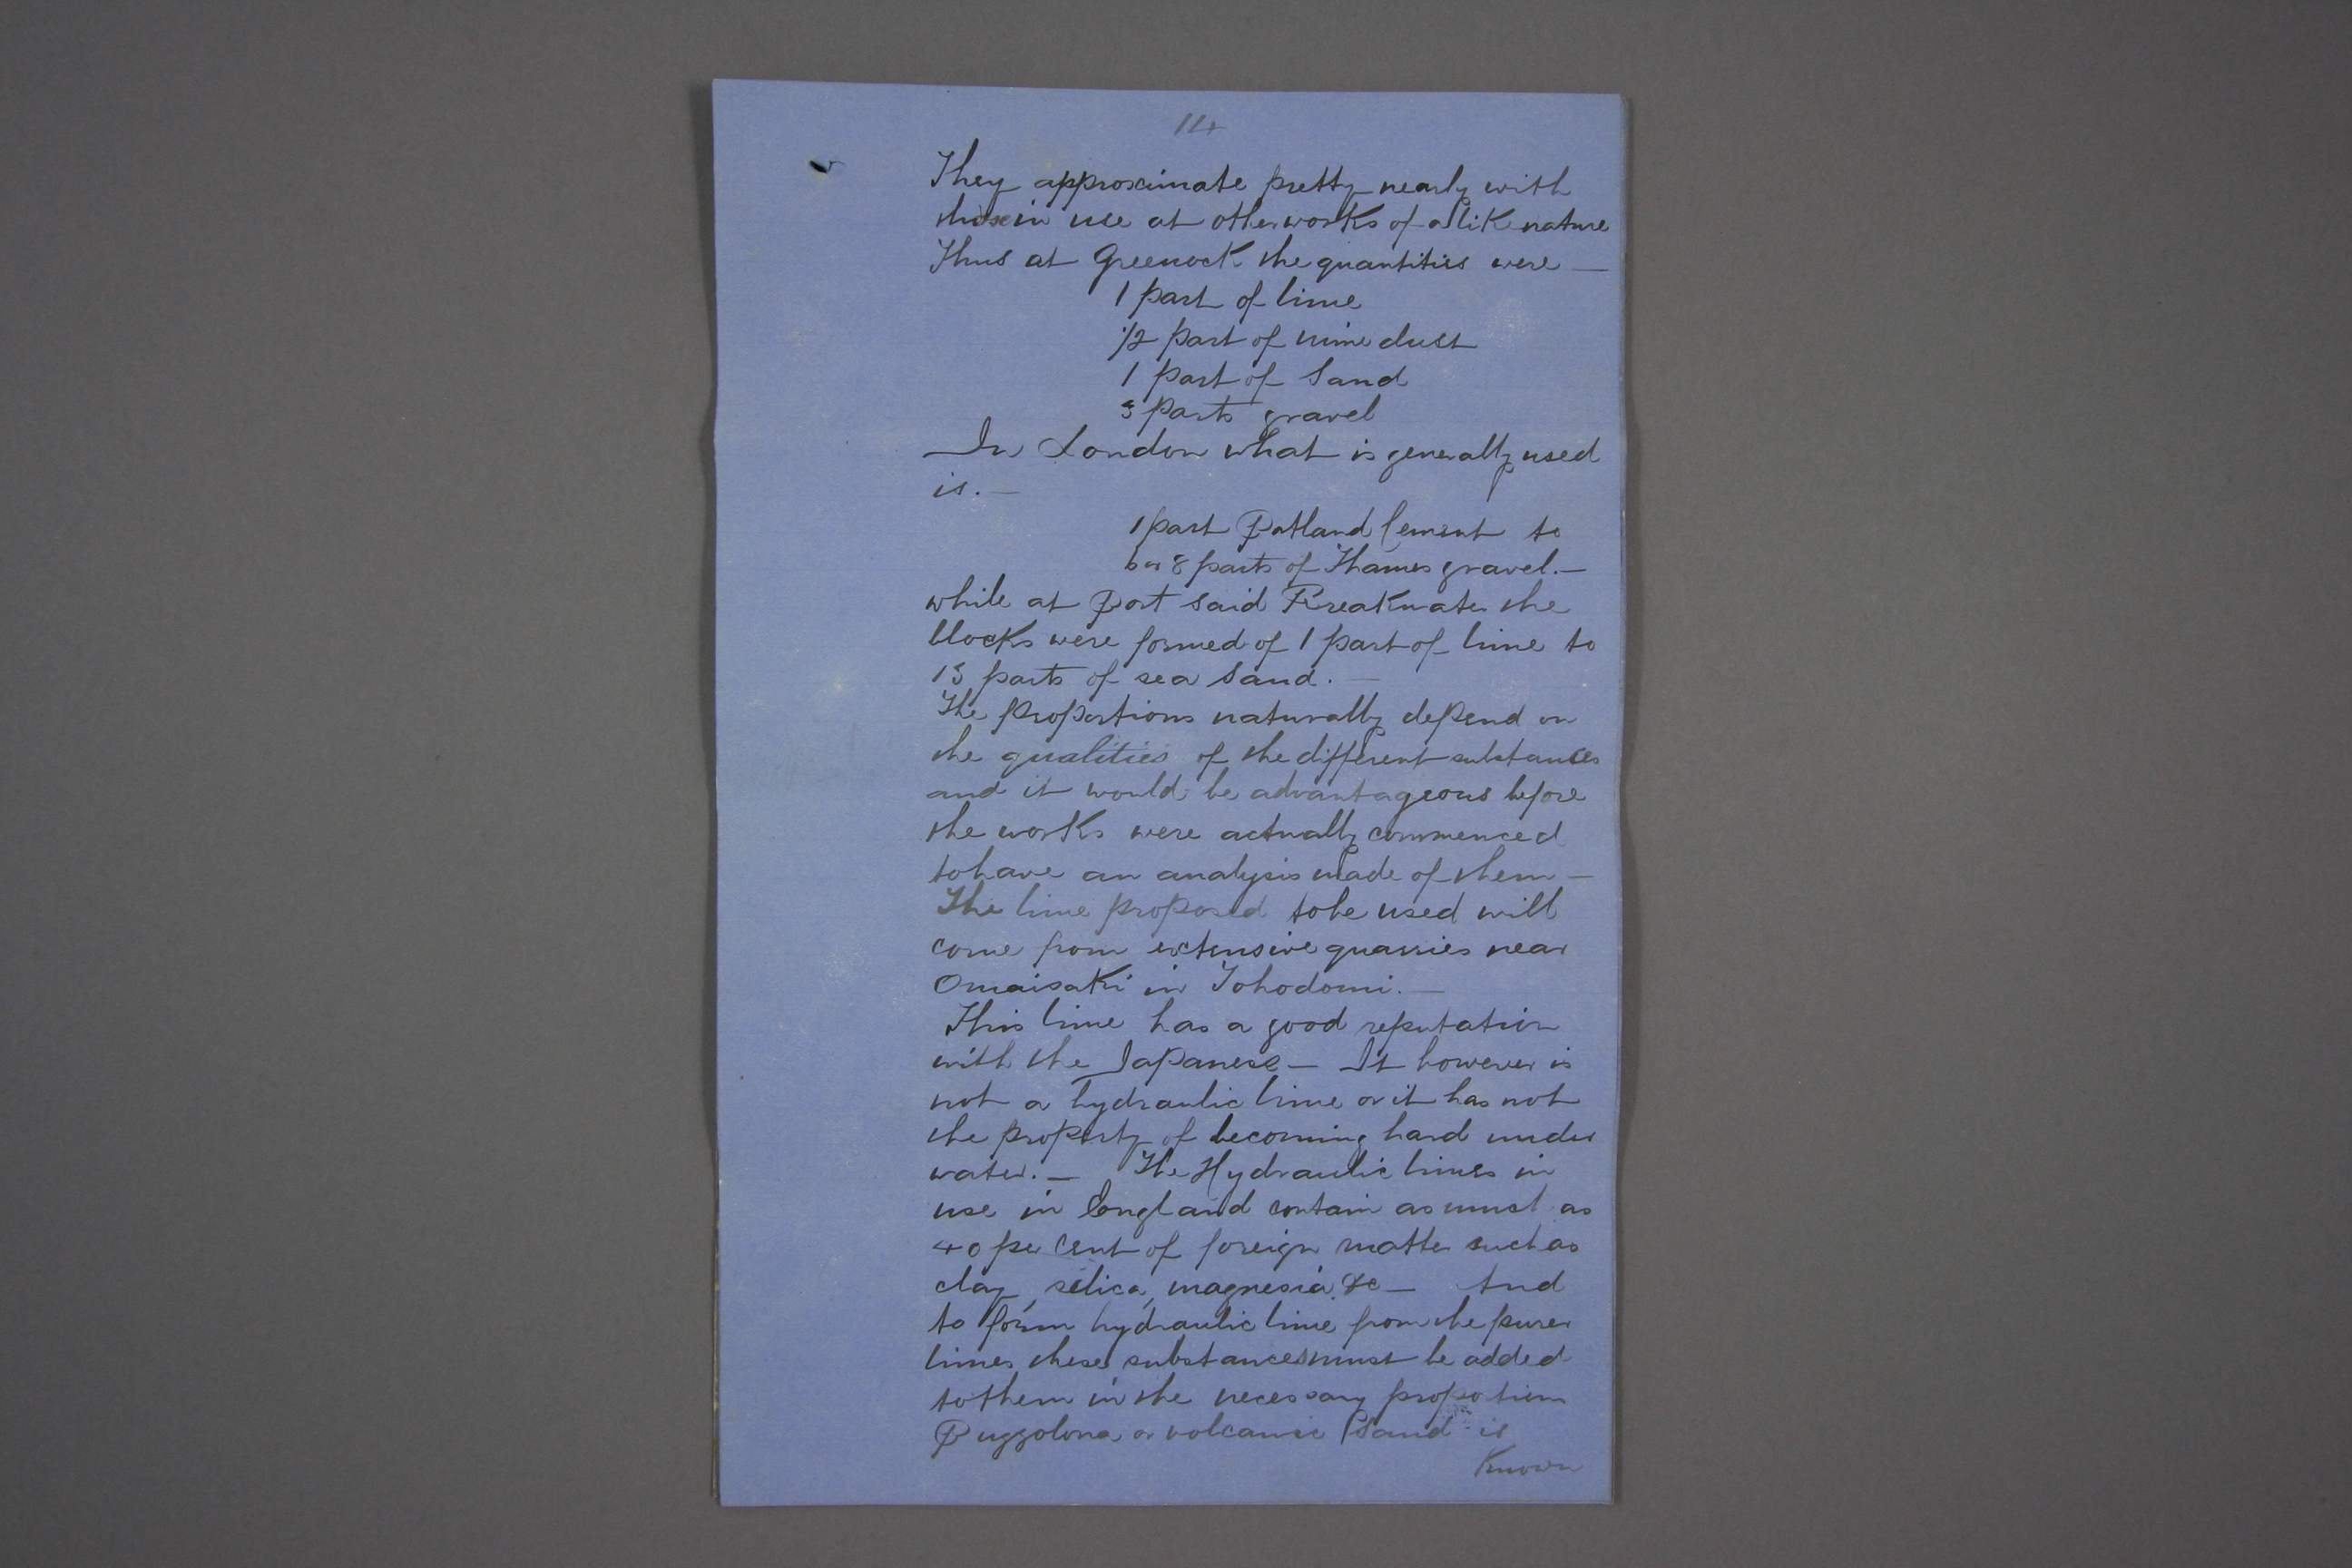 14
They approximate pretty nearly with
those in use at other works of a like nature
Thus at Greenock the quantities were —
1 part of lime
1/2 part of mine dust
1 part of Sand
3 parts gravel
In London what is generally used
is. —
1 part Portland Cement to
6 or 8 parts of Thames gravel. —
while at Port Said Breakwater the
blocks were formed of 1 part of lime to
13 parts of sea sand. —
The proportions naturally depend on
the qualities of the different substances
and it would be advantageous before
the works were actually commenced
to have an analysis made of them —
The lime proposed to be used will
come from extensive quarries near
Omaisaki in Tohodomi. —
This lime has a good reputation
with the Japanese — It however is
not a hydraulic lime or it has not
the property of becoming hard under
water. — The Hydraulic limes in
use in England contain as much as
40 per cent of foreign matter such as
clay, silica, magnesia &c — And
to form hydraulic lime from the purer
limes these substances must be added
to them in the necessary proportion
Puzzolona or volcanic Sand is
Known